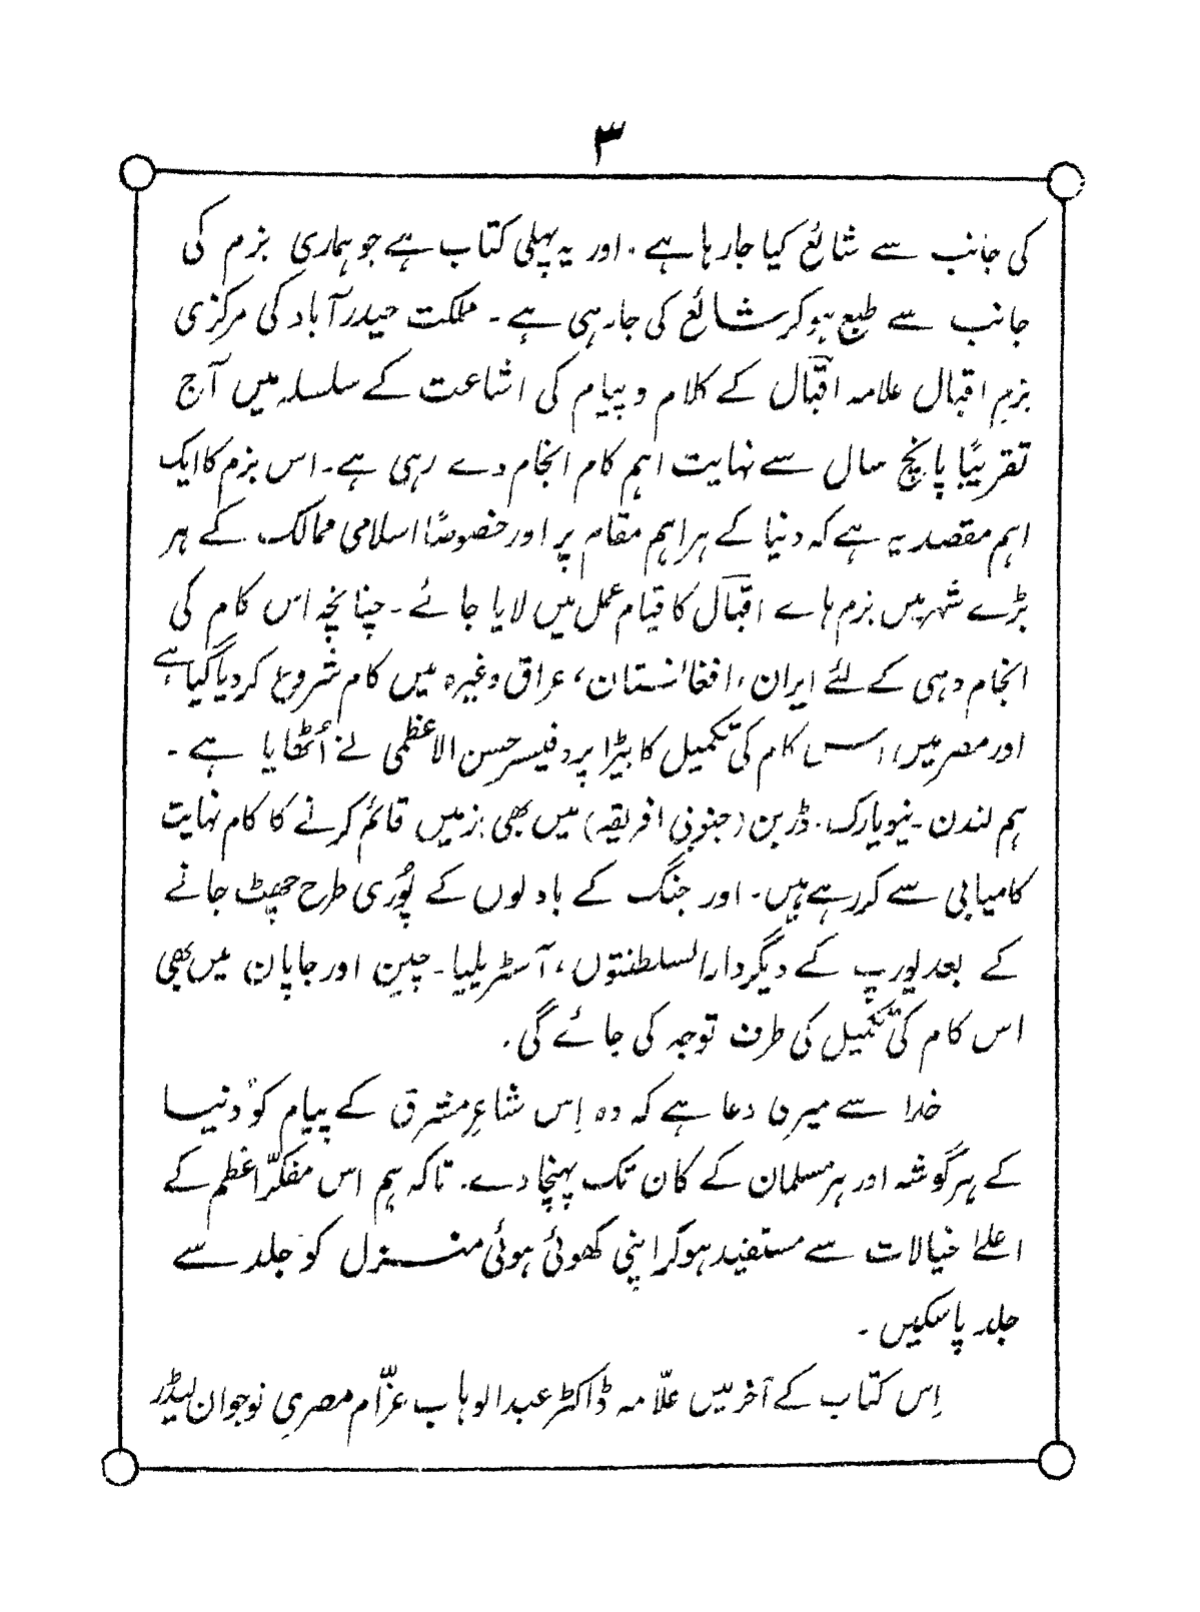 ۳
کی جانب سے شائع کیا جا رہا ہے۔ اور یہ پہلی کتاب ہے جو ہماری بزم کی
جانب سے طبع ہو کر شائع کی جا رہی ہے۔ مملکت حیدرآباد کی مرکزی
بزمِ اقبال علامہ اقبالؔ کے کلام و پیام کی اشاعت کے سلسلہ میں آج
تقریبًا پانچ سال سے نہایت اہم کام انجام دے رہی ہے۔ اس بزم کا ایک
اہم مقصد یہ ہے کہ دنیا کے ہر اہم مقام پر اور خصوصًا اسلامی ممالک کے ہر
بڑے شہر میں بزم ہائے اقبالؔ کا قیام عمل میں لایا جائے۔ چنانچہ اس کام کی
انجام دہی کے لئے ایران، افغانستان، عراق وغیرہ میں کام شروع کر دیا گیا ہے
اور مصر میں اس کام کی تکمیل کا بیڑا پروفیسر حسن الاعظمی نے اُٹھایا ہے۔
ہم لندن۔ نیویارک۔ ڈربن (جنوبی افریقہ) میں بھی بزمیں قائم کرنے کا کام نہایت
کامیابی سے کر رہے ہیں۔ اور جنگ کے بادلوں کے پُوری طرح چھٹ جانے
کے بعد یورپ کے دیگر دارالسلطنتوں، آسٹریلیا۔ چین اور جاپان میں بھی
اس کام کی تکمیل کی طرف توجہ کی جائے گی۔
خدا سے میری دعا ہے کہ وہ اِس شاعرِ مشرق کے پیام کو دُنیا
کے ہر گوشہ اور ہر مسلمان کے کان تک پہنچا دے۔ تاکہ ہم اس مفکّرِ اعظم کے
اعلےٰ خیالات سے مستفید ہو کر اپنی کھوئی ہوئی منزل کو جلد سے
جلد پا سکیں۔
اِس کتاب کے آخر میں علّامہ ڈاکٹر عبدالوہاب عزّام مصری نوجوان لیڈر